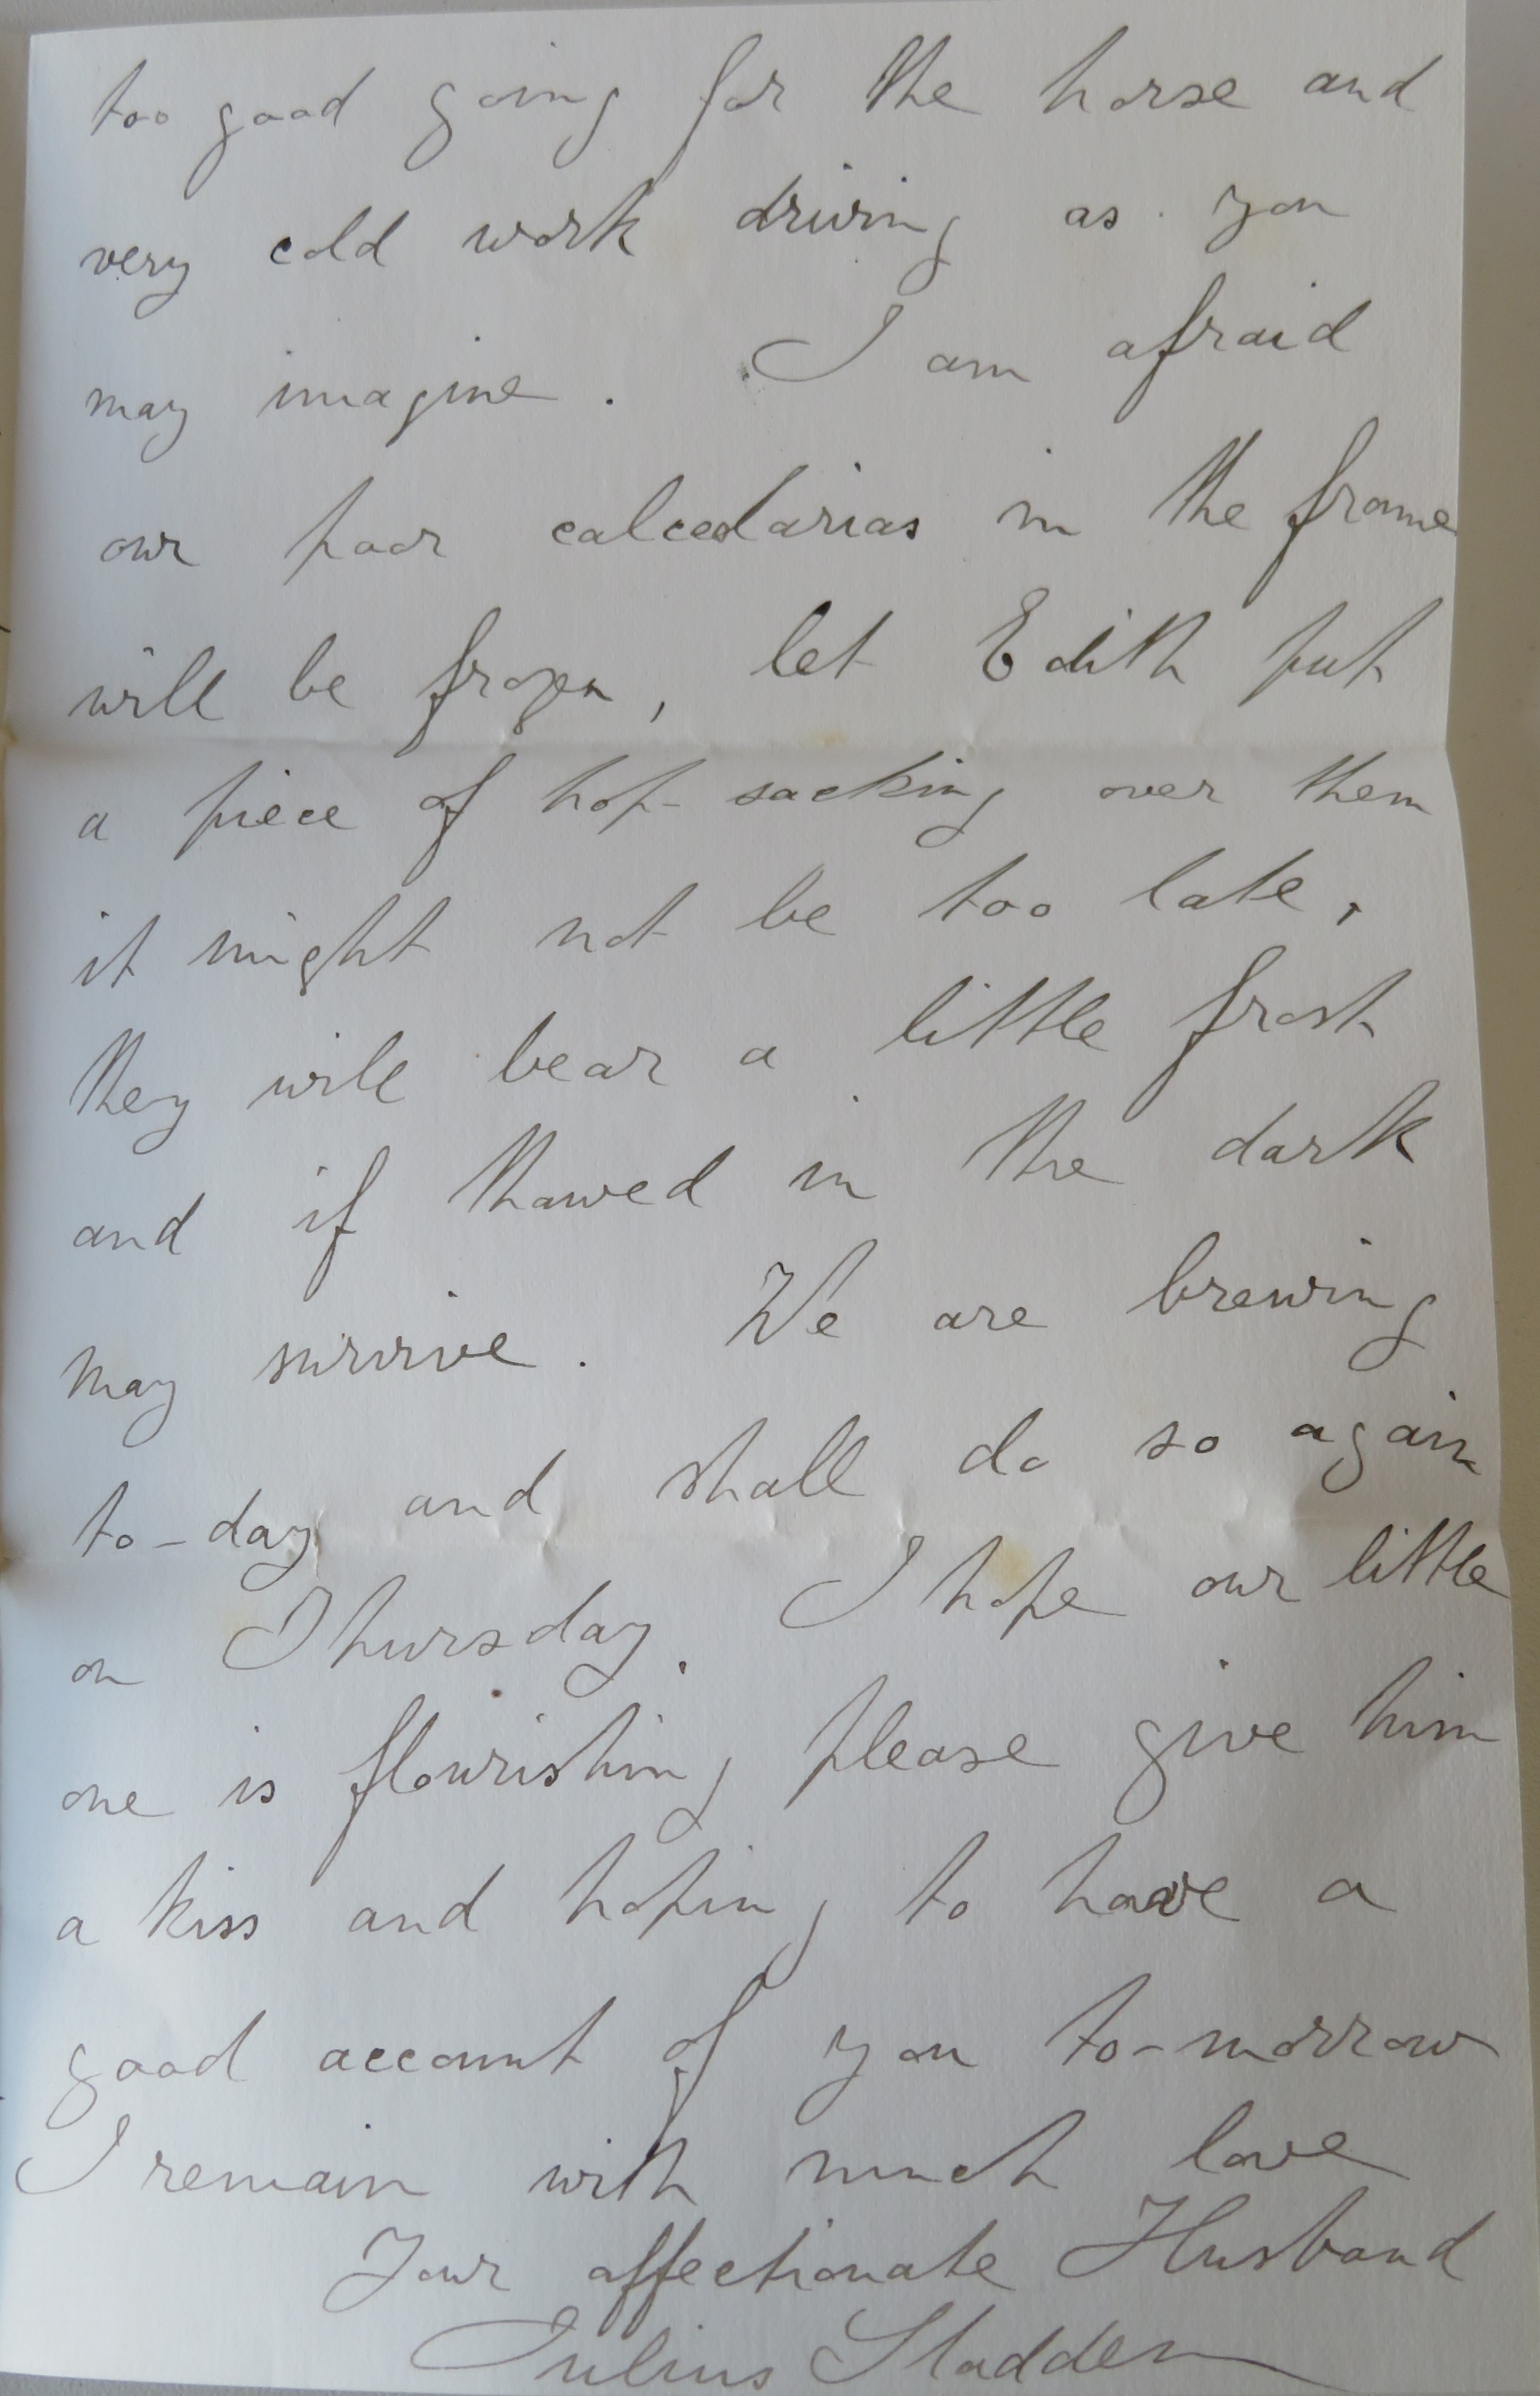 too good going for the horse and
very cold work driving as you
may imagine. I am afraid
our poor calceolarias in the frame
will be frozen, let Edith put
a piece of hop-sacking over them
it might not be too late,
they will bear a little frost
and if thawed in the dark
may survive. We are brewing
to-day and shall do so again
on Thursday. I hope our little
one is flourishing please give him
a kiss and hoping to have a
good account of you to-morrow
I remain with much love
Your affectionate Husband
Julius Sladden